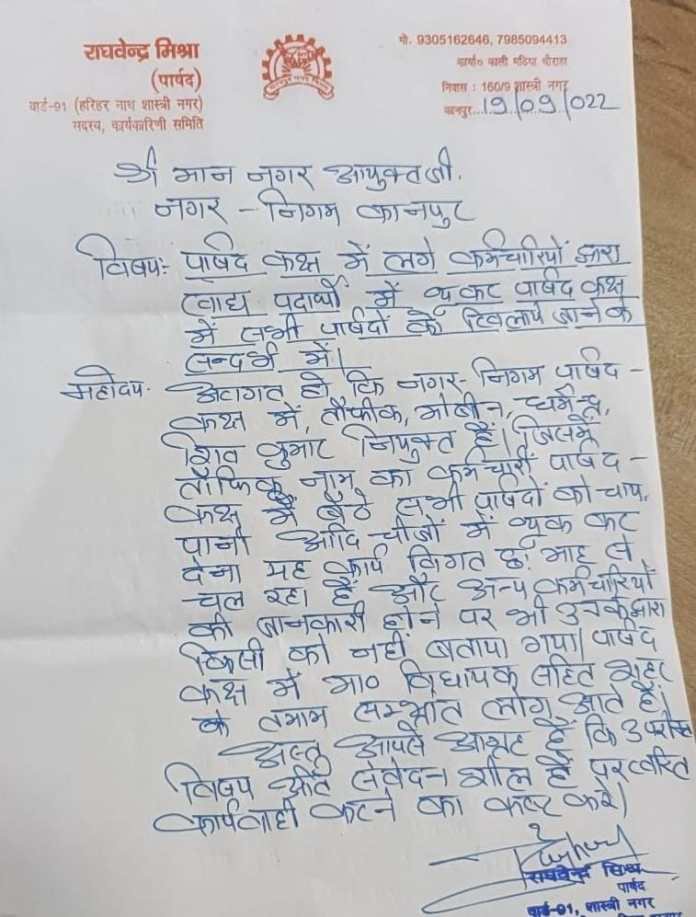 राघवेन्द्र मिश्रा
(पार्षद)
वार्ड-91 (हरिहर नाथ शास्त्री नगर)
सदस्य, कार्यकारिणी समिति
मो. 9305162646, 7985094413
कार्या० काली मठिया चौराहा
निवास : 160/9 शास्त्री नगर
कानपुर....19/09/022
श्री मान नगर आयुक्त जी.
नगर - निगम कानपुर
विषय: पार्षद कक्ष में लगे कर्मचारियों द्वारा
खाद्य पदार्थों में थूककर पार्षद कक्ष
में सभी पार्षदों को खिलाये जाने के
सन्दर्भ में।
महोदय. अवगत हो कि नगर-निगम पार्षद -
कक्ष में, तौफीक, मोबीन, धर्मेन्द्र,
शिव कुमार नियुक्त है। जिसमें
तौफिक नाम का कर्मचारी पार्षद -
कक्ष में बैठे सभी पार्षदों को चाय,
पानी आदि चीजों में थूक कर
देना यह कार्य विगत छः माह से
चल रहा है और अन्य कर्मचारियों
की जानकारी होने पर भी उनके द्वारा
किसी को नहीं बताया गया। पार्षद
कक्ष में मा० विधायक सहित शहर
के तमाम सम्भ्रांत लोग आते हैं।
अस्तु आपसे आग्रह है कि उपरोक्त
विषय अति संवेदन शील है पर त्वरित
कार्यवाही करने का कष्ट करें।
राघवेन्द्र मिश्रा
पार्षद
वार्ड-91, शास्त्री नगर